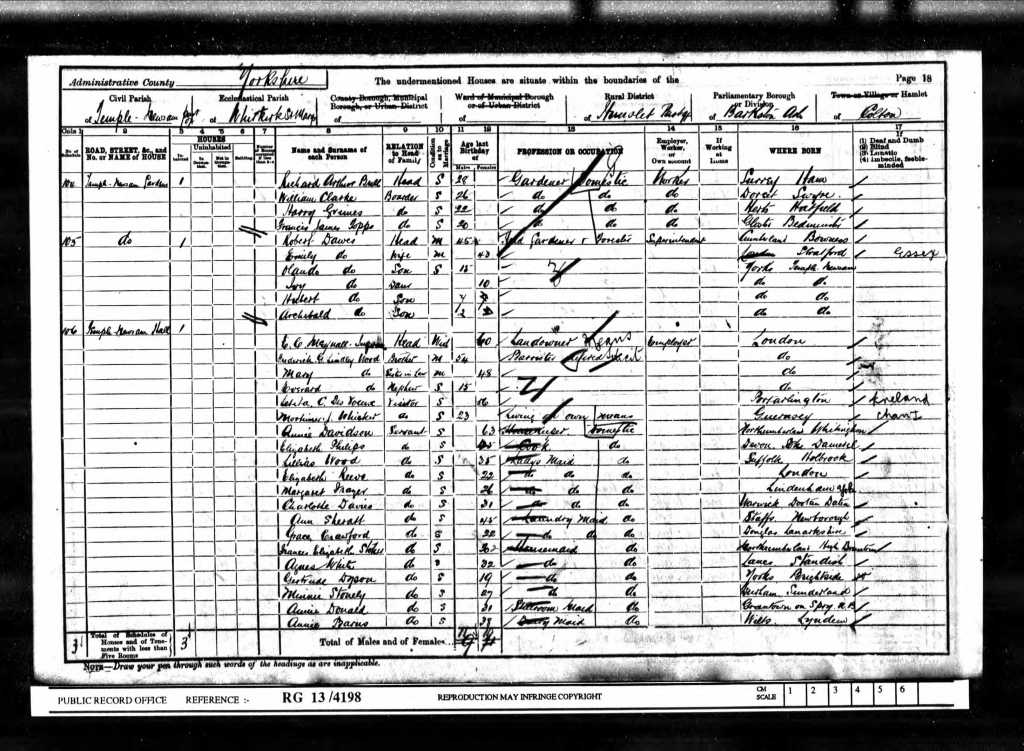 Administrative County Yorkshire The undermentioned Houses are situate within the boundaries of the Page 18
Civil Parish Ecclesiastical Parish County Borough, Municipal Borough, or Urban District Ward of Municipal Borough or of Urban District Rural District Parliamentary Borough or Division Town or Village or Hamlet
of Temple Newsam of of of of Hunslet of Barkston Ash of Colton
Cols 1 2 3 4 5 6 7 8 9 10 11 12 13 14 15 16 17
No. of Schedule ROAD, STREET, &c., and No. or NAME of HOUSE HOUSES Inhabited Uninhabited Name and Surname of each Person RELATION to Head of Family Condition as to Marriage Age last Birthday of Males Females PROFESSION OR OCCUPATION Employer, Worker, or Own account If Working at Home WHERE BORN If (1) Deaf and Dumb (2) Blind (3) Lunatic (4) Imbecile, feeble-minded
104 Temple Newsam Gardens 1 Richard Arthur Head S 29 Gardener Domestic Worker Surrey Ham
William Clarke Boarder S 26 do do do Dorset Swyre
Harry Grimes do S 22 do do do Herts Hatfield
Francis James Topps do S 20 do do do
105 do 1 Robert Dawes Head M 45 Gardener & Forester Superintendent Cumberland Bowness
Emily do Wife M 43 Stratford Essex
Claude do Son S 15 Yorks Temple Newsam
Ivy do Daur 10 do do
Hubert do Son 7 do do
Archibald do Son do do
106 Temple Newsam Hall 1
E. C. Meynell Ingram Head Wid 60 Landowner Employer London
Frederick G. Lindley Wood Brother M 54 Barrister do
Mary do Sister in Law M 48 do
Everard do Nephew S 15 do
C. Des Voeux Visitor S Portarlington Ireland
Mortimer Whicker do S 23 Living on own means Guernsey
Annie Davidson Servant S 63 Housekeeper Domestic Northumberland Whittingham
Elizabeth Philips do S Cook do Devon
Lillias Wood do S 35 Ladys Maid do Suffolk Holbrook
Elizabeth Reeve do S 22 do do London
Margaret Frazer do S 26 do do
Charlotte Davis do S 31 do do Warwick
Ann Sheratt do S 45 Laundry Maid do Staffs Newborough
Grace Crawford do S 22 do do Douglas Lanarkshire
Frances Elizabeth Stokes do S Housemaid do Northumberland
Agnes White do S 32 do do Lancs Standish
Gertrude Dyson do S 19 do do Yorks Brightside
Minnie Stonely do S 27 do do Durham Sunderland
Annie Donald do S 31 Stillroom Maid do Grantown on Spey N.B.
Annie Barns do S 38 Dairy Maid do Wilts
3 Total of Schedules of Houses and of Tenements with less than Five Rooms 3 Total of Males and of Females...
NOTE—Draw your pen through such words of the headings as are inapplicable.
PUBLIC RECORD OFFICE REFERENCE :- RG 13/4198 REPRODUCTION MAY INFRINGE COPYRIGHT CM SCALE 1 2 3 4 5 6